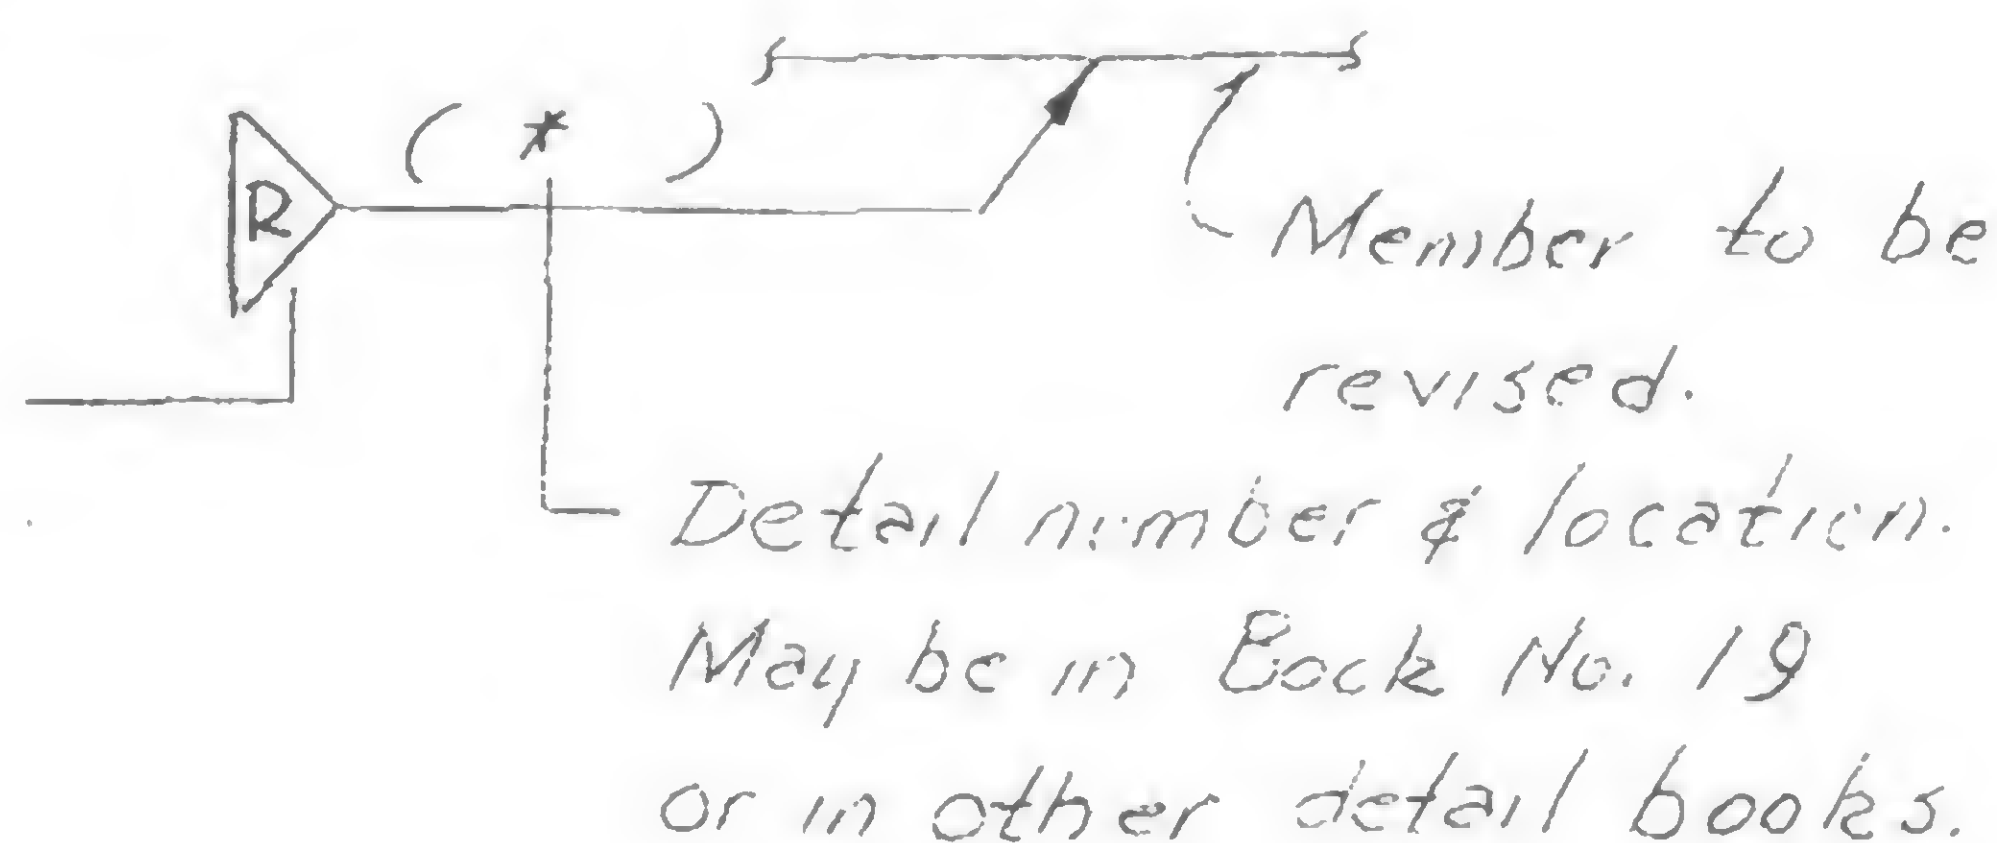 ( * )
R
Member to be
revised.
Detail number & location.
May be in Book No. 19
or in other detail books.